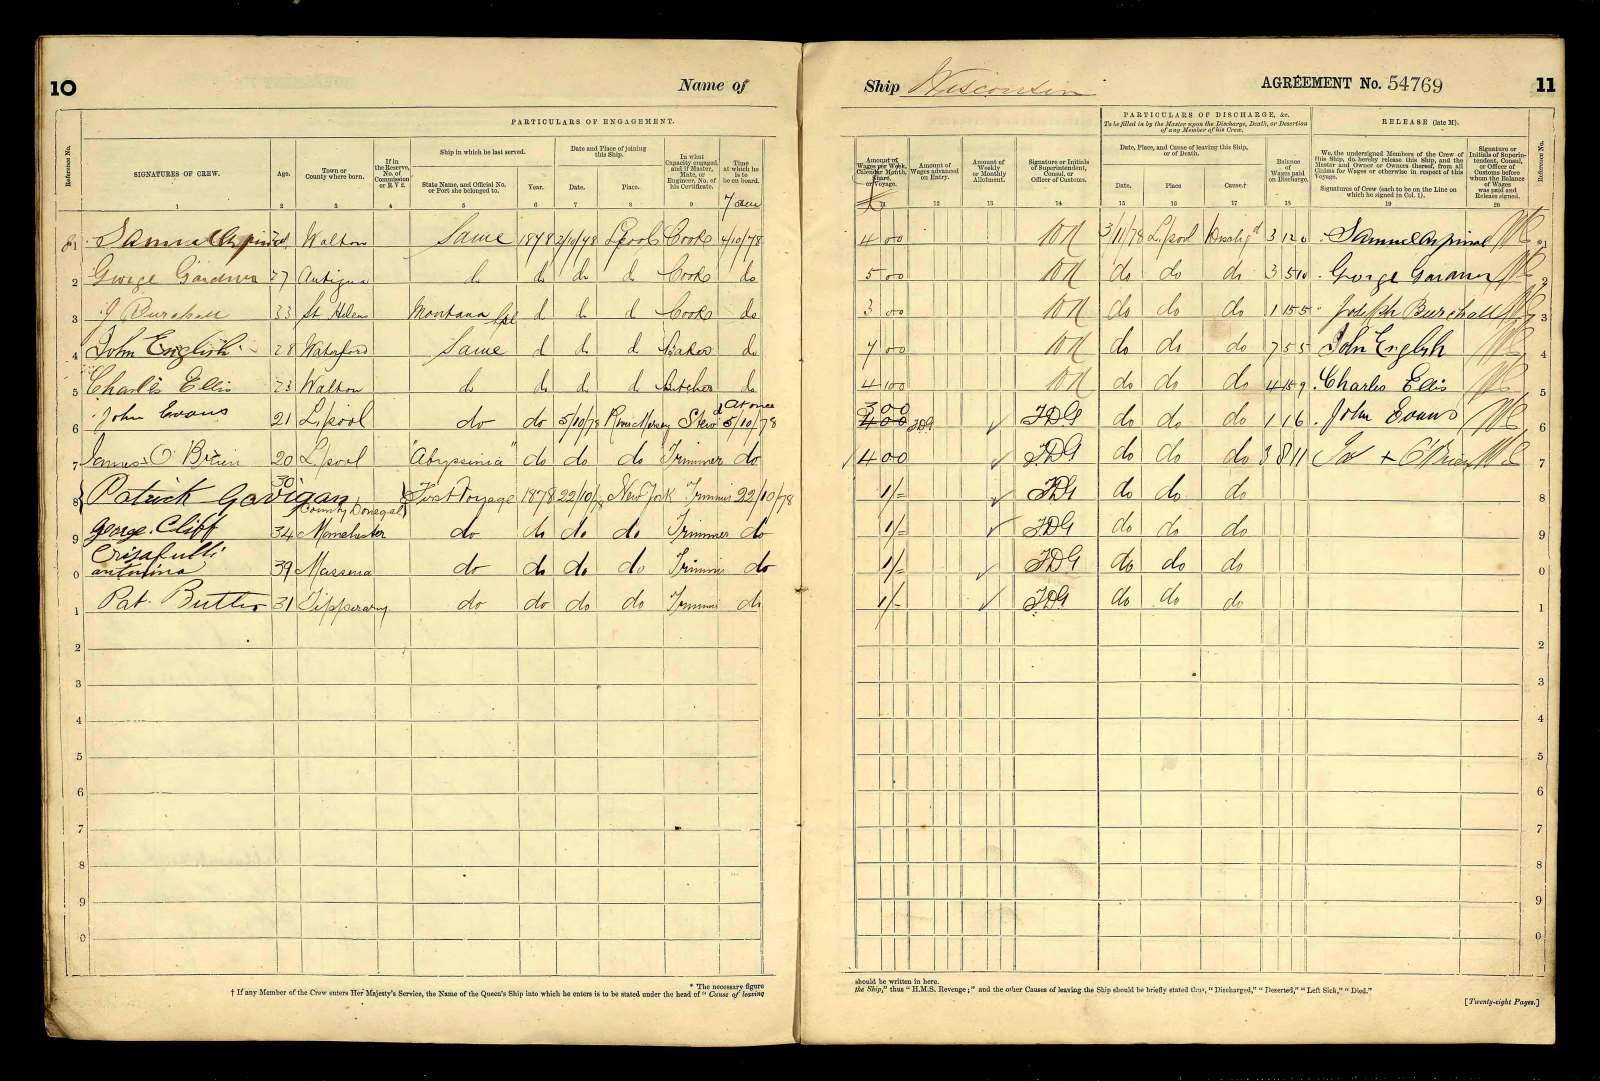 10
Name of
Ship Wisconsin
AGREEMENT No. 54769
11
PARTICULARS OF ENGAGEMENT.
PARTICULARS OF DISCHARGE, &c.
To be filled in by the Master upon the Discharge, Death, or Desertion of any Member of his Crew.
RELEASE (late M).
Reference No.
SIGNATURES OF CREW.
Age.
Town or County where born.
If in the Reserve, No. of Commission or R V 2.
Ship in which he last served.
State Name, and Official No. or Port she belonged to.
Year.
Date and Place of joining this Ship.
Date.
Place.
In what Capacity engaged, and if Master, Mate, or Engineer, No. of his Certificate.
Time at which he is to be on board.
7 am
Amount of Wages per Week, Calendar Month, Share, or Voyage.
Amount of Wages advanced on Entry.
Amount of Weekly or Monthly Allotment.
Signature or Initials of Superintendent, Consul, or Officer of Customs.
Date, Place, and Cause of leaving this Ship, or of Death.
Date.
Place
Cause†
Balance of Wages paid on Discharge.
We, the undersigned Members of the Crew of this Ship, do hereby release this Ship, and the Master and Owner or Owners thereof, from all Claims for Wages or otherwise in respect of this Voyage.
Signatures of Crew (each to be on the Line on which he signed in Col. 1).
Signature or Initials of Superintendent, Consul, or Officer of Customs before whom the Balance of Wages was paid and Release signed.
Reference No.
1 2 3 4 5 6 7 8 9 10 11 12 13 14 15 16 17 18 19 20
1 Samuel Aspinal Walton Same 1878 2/10/78 Lpool Cook 4/10/78 4 00 3/11/78 L.pool 3 12 0 Samuel Aspinal 1
2 George Gardner 27 Antigua do do do do Cook do 5 00 do do do 3 5 10 George Gardner 2
3 J Burchall 33 St Helens Montana Lpl d do d Cook do 3 00 do do do 1 15 5 Joseph Burchall 3
4 John English 28 Waterford Same d do d Baker do 7 00 do do do 7 5 5 John English 4
5 Charles Ellis 23 Walton do do do do Butcher do 4 10 0 do do do 4 15 9 Charles Ellis 5
6 John Evans 21 L.pool do do 5/10/78 River Mersey Stewd At once 5/10/78 3 0 0 4 0 0 JDG JDG do do do 1 1 6 John Evans 6
7 James O Brien 20 L.pool "Abyssinia" do do do Trimmer do 4 0 0 JDG do do do 3 8 11 Jas + O'Brien 7
8 Patrick Gavigan 30 County Donegal First Voyage 1878 22/10/78 New York Trimmer 22/10/78 1/= JDG do do do 8
9 George Cliff 34 Manchester do do do do Trimmer do 1/= JDG do do do 9
Crisafulli
0 antonino 39 Messena do do do do Trimmer do 1/= JDG do do do 0
1 Pat. Butler 31 Tipperary do do do do Trimmer do 1/- JDG do do do 1
2 2
3 3
4 4
5 5
6 6
7 7
8 8
9 9
0 0
* The necessary figure should be written in here.
† If any Member of the Crew enters Her Majesty's Service, the Name of the Queen's Ship into which he enters is to be stated under the head of "Cause of leaving the Ship," thus "H.M.S. Revenge;" and the other Causes of leaving the Ship should be briefly stated thus, "Discharged," "Deserted," "Left Sick," "Died."
[Twenty-eight Pages.]